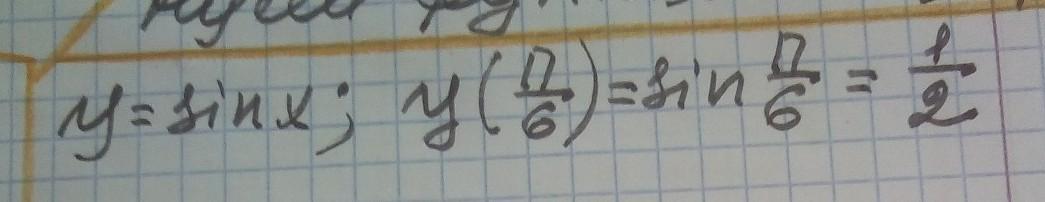 y = sin x; y(π/6) = sin π/6 = 1/2